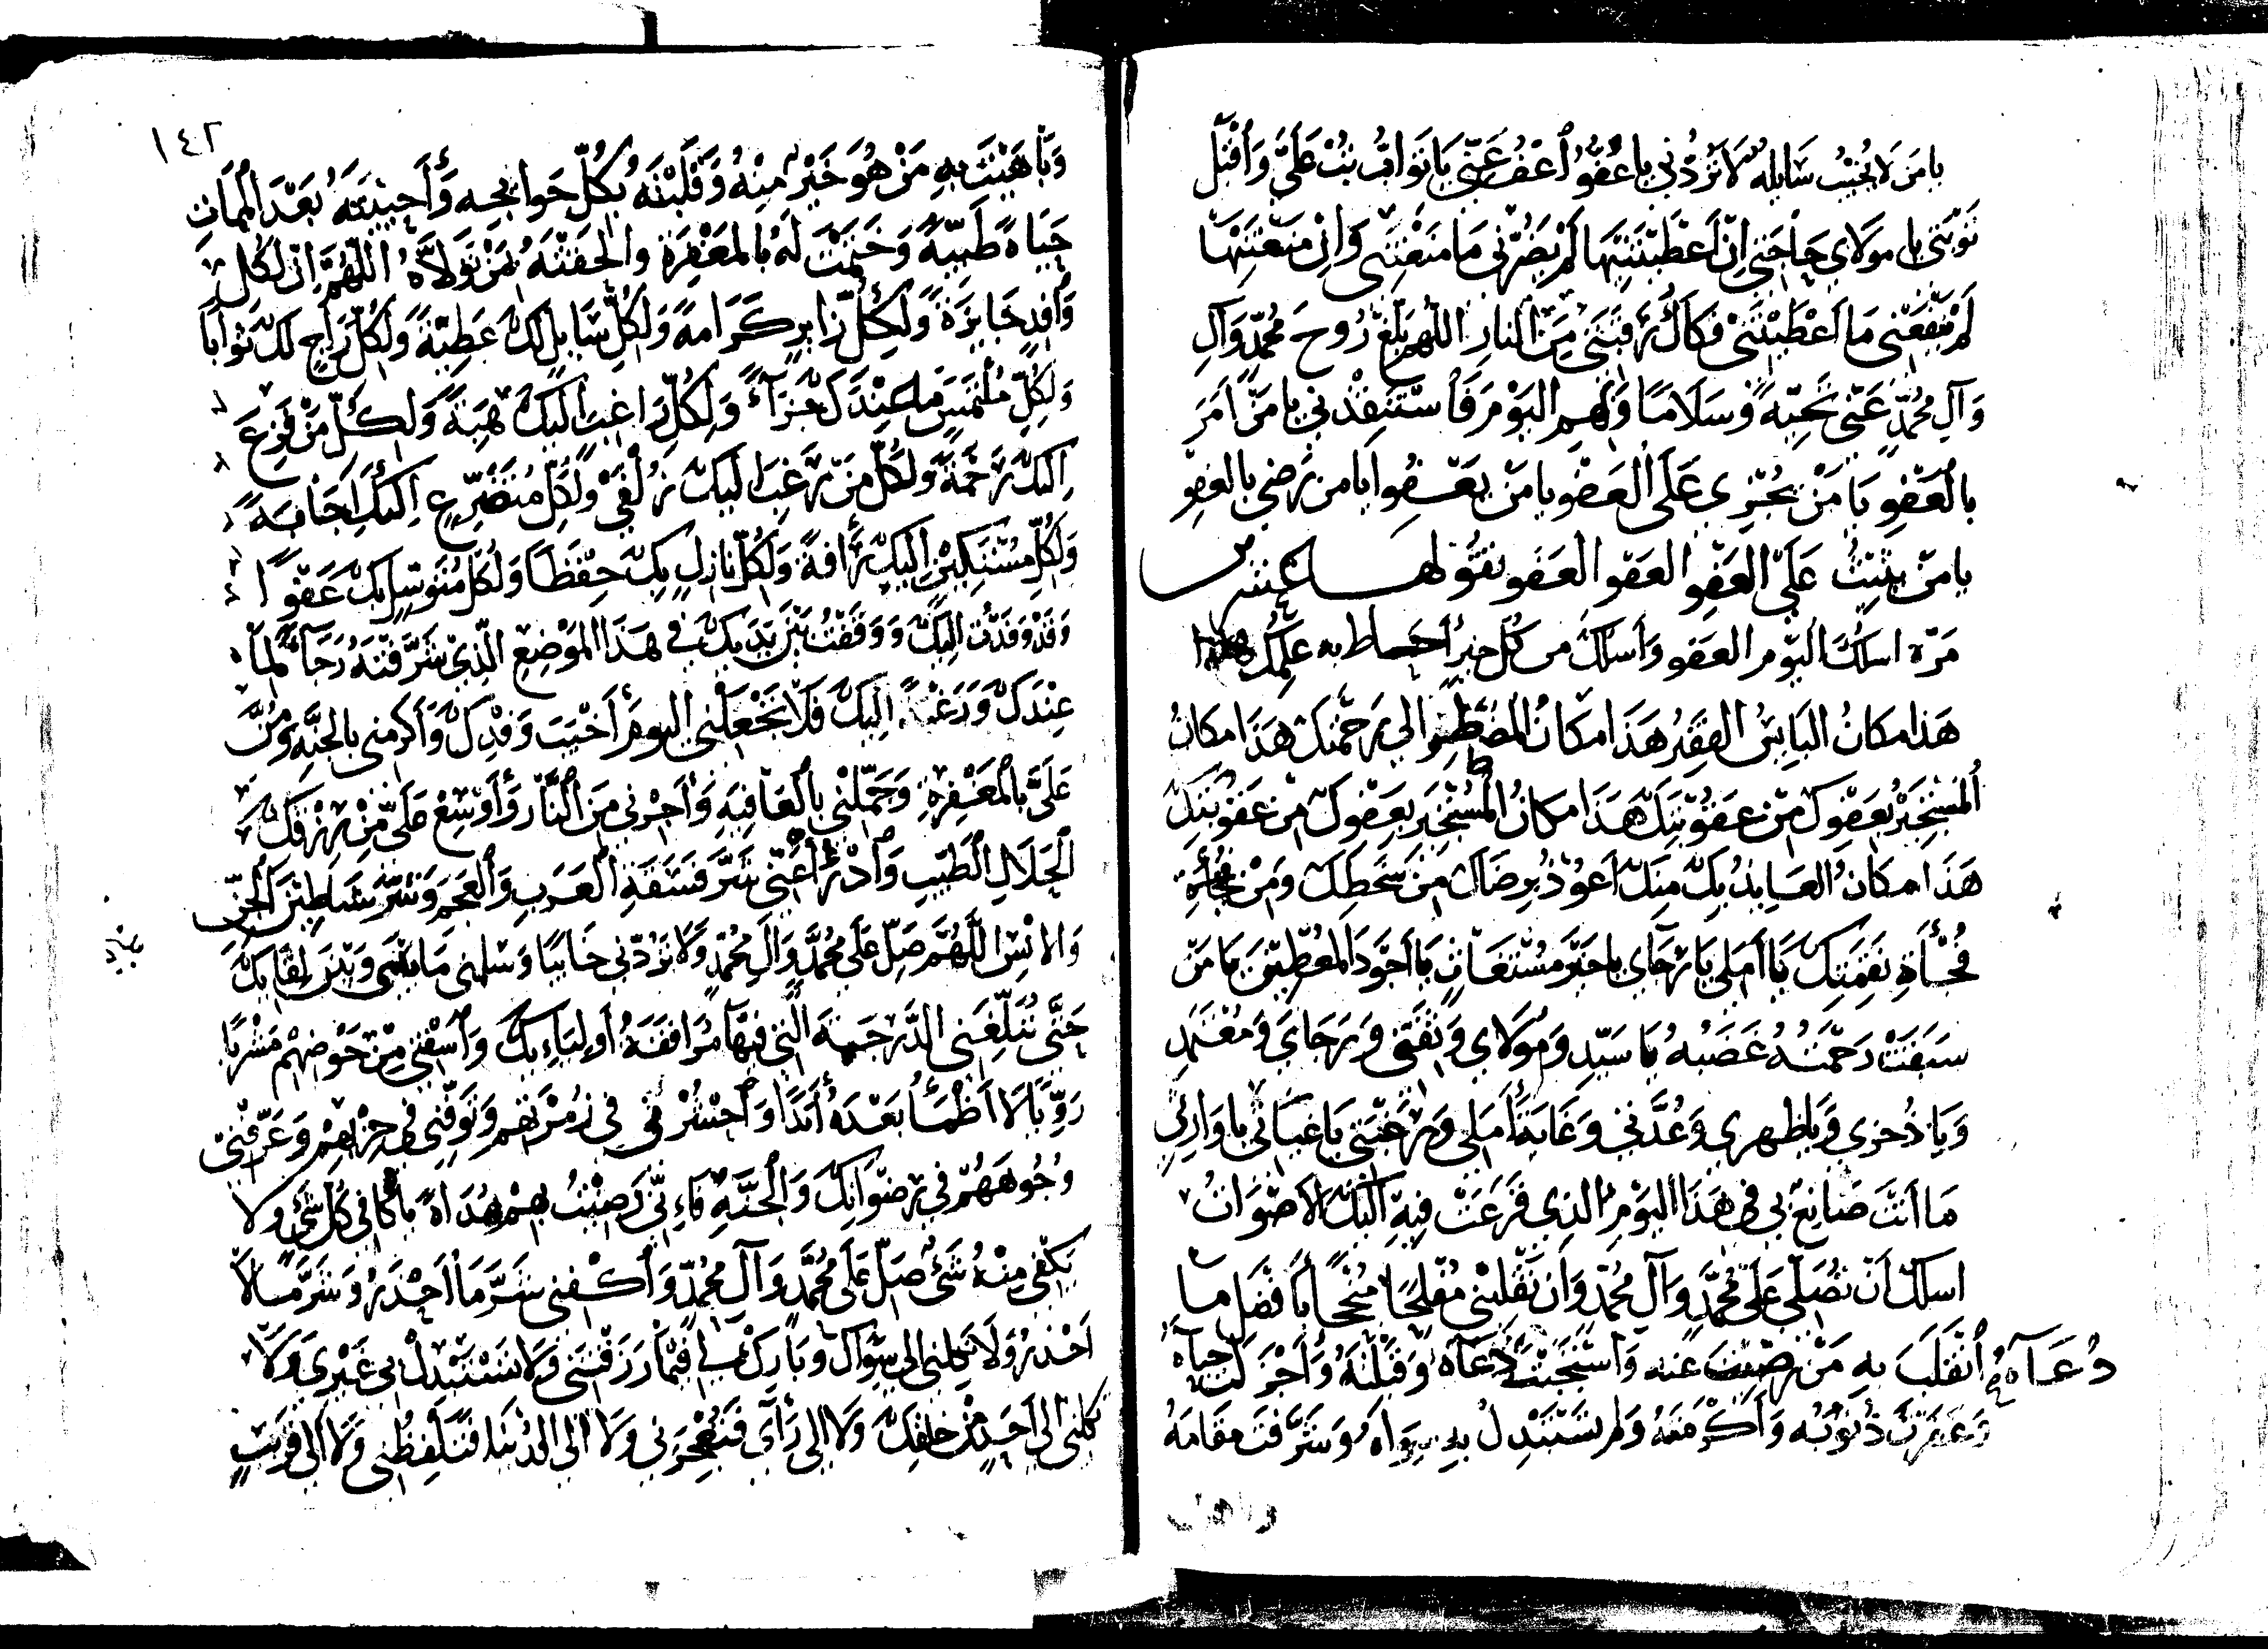 يا مَن لا يُخَيِّبُ سَايِلَهُ لا تَرُدَّني يا عَفُوُّ اعْفُ عَنّي يا تَوّابُ تُبْ عَلَيَّ وَاقْبَلْ
تَوْبَتي يا مولاي حَاجَتي اِنْ اَعْطَيْتَنيهَا لَمْ يَضُرَّني مَا مَنَعْتَنِي وَاِنْ مَنَعْتَنيهَا
لَمْ يَنْفَعْني مَا اَعْطَيْتَني فَكَاكَ رَقَبَتي مِنَ النارِ اللهم بَلِّغْ رُوحَ مُحَمَّدٍ وَآلِ
وَآلِ مُحَمَّدٍ عَنّي تَحِيَّةً وَسَلَامًا وَبهم اليَوْمَ فَاسْتَنْقِذْني يا مَنْ اَمَرَ
بالعَفْوِ يَا مَنْ يَجْزِي عَلَى العَفْوِ يا مَنْ يَعْفُوا يا من رَضِيَ بالعفو
يا مَنْ يُثيبُ عَلَى العَفْوِ العَفو العَفو تقولها عشرين
مَرّة اسلك اليَوْمَ العَفو وَأسلك من كل خيرٍ أحَاط به علمك
هَذا مكانُ البَايِسِ الفقيرِ هَذَا مكَانُ المُضطَرِّ الى رَحْمَتِكَ هَذَا مكانُ
المُسْتَجيرِ بعَفْوِكَ مِنْ عقوبَتِكَ هَذَا مكانُ المُسْتَجيرِ بعَفوِكَ مِنْ عقوبَتِكَ
هَذَا مكَانُ العَايِذِ بِكَ مِنكَ اَعُوذُ بِرِضَاكَ مِنْ سَخَطِكَ وَمِنْ فجأةِ
فُجْأَةِ نَقِمَتِكَ يَا اَمَلي يَا رَجَاي يا خَيْرَ مُسْتَغَاثٍ يَا أجْوَدَ المُعْطينَ يَا مَنْ
سَبَقَتْ رَحْمَتُهُ غَضَبَهُ يَا سَيّدِي وَمَوْلاي وَثِقَتي وَرَجَايَ وَمُعْتَمَدِي
وَيَا ذُخري وَيا ظهري وَعُدَّتي وَغَايَةَ اَمَلي وَرَغْبَتي يَا غِيَاثي يا وَارِثي
مَا اَنْتَ صَانِعٌ بي في هَذَا اليَوْمِ الذِي فَزِعَتْ فيهِ اِلَيْكَ الأصْوَاتُ
اسلك اَنْ تُصَلِّيَ عَلَى مُحَمَّدٍ وَآلِ مُحَمَّدٍ وَاَنْ تَقْلِبَني مُفْلِحًا مُنْجِحًا بأفضَلِ ما
انْقَلَبَ بِهِ مَنْ رَضيتَ عنه وَاسْتَجَبْتَ دُعَآهُ وَقَبِلْتَهُ وَأَجْزَلْتَ حِبَآهُ
دُعَآهُ
وَغَفَرْتَ ذُنُوبَه وَأَكْرَمْتَهُ وَلم تَسْتَبْدِلْ بهِ سِوَاهُ وَشَرَّفْتَ مَقَامَهُ
وباهيت
١٤٢
وَبَاهَيْتَ بِهِ مَنْ هُوَ خَيْرٌ مِنهُ وَقَلَبْتَهُ بِكُلِّ حَوايجِهِ وَأحْيَيْتَهُ بَعْدَ المَمَاتِ
حَيَاةً طَيِّبَةً وَخَتَمْتَ لَهُ بالمَغْفِرَةِ وَالحَقْتَهُ بِمَنْ تَوَلّاهُ اللّهُمَّ اِنَّ لكُلِّ
وَافِدٍ جَايزَةً وَلِكُلِّ زَايرٍ كَرَامَةً وَلكُلِّ سَايلٍ لَكَ عَطِيَّةً وَلكُلِّ رَاجٍ لَكَ ثَوابًا
وَلِكُلِّ مُلْتَمِسٍ مَا عِنْدَكَ جَزَآءً وَلِكُلِّ رَاغِبٍ اِلَيْكَ هِبَةً وَلكُلِّ مَنْ فَزِعَ
اِلَيْكَ رَحْمَةً وَلكُلِّ مَنْ رَغِبَ اِلَيْكَ زُلْفَى وَلكُلِّ مُتَضَرِّعٍ اِلَيْكَ اِجَابَةً
وَلكُلِّ مُسْتَكينٍ اِلَيْكَ رَأْفَةً وَلكُلِّ نازِلٍ بِكَ حِفْظًا وَلكُلِّ مُتَوَسِّلٍ بِكَ عَفْوًا
وَقَدْ وَفَدْتُ اِلَيْكَ وَوَقَفْتُ بَيْنَ يَدَيْكَ في هَذَا المَوْضِعِ الَّذِي شَرَّفْتَهُ رَجَآءً لمَا
عِنْدَكَ وَرَغْبَةً اِلَيْكَ فَلَا تَجْعَلْني اليومَ أخْيَبَ وَفْدِكَ وَأكْرِمْني بالجَنَّةِ وَمُنَّ
عَلَيَّ بِالمَغْفِرَةِ وَجَمِّلْني بِالعَافِيَةِ وَأجِرْني مِنَ النَّارِ وَأوْسِعْ عَلَيَّ مِنْ رِزْقِكَ
الحَلَالِ الطَّيِّبِ وَادْرَأْ عَنّي شَرَّ فَسَقَةِ العَرَبِ وَالعَجَمِ وَشَرَّ شَيَاطِينِ الجِنِّ
وَالانْسِ اللّهُمَّ صَلِّ عَلَى مُحَمَّدٍ وَآلِ مُحَمَّدٍ وَلَا تَرُدَّني خَايبًا وَسَلِّمْني مَا بَيْني وَبَيْنَ لِقَايِكَ
حَتَّى تُبَلِّغَني الدَّرَجَةَ الَّتي فيهَا مُرَافَقَةُ أوْلِيَايِكَ وَاسْقِني مِنْ حَوْضِهِمْ مَشْرَبًا
رَوِيًّا لَا أظْمَأُ بَعْدَهُ أَبَدًا وَاحْشُرْني في زُمْرَتِهِمْ وَتَوَفَّني في حِزْبِهِمْ وَعَرِّفْني
وُجُوهَهُمْ في رِضْوَانِكَ وَالجَنَّةِ فَاِنّي رَضِيْتُ بهِمْ هُدَاةً يا كافي كُلِّ شَيءٍ وَلا
يَكْفي مِنْهُ شَيءٌ صَلِّ عَلَى مُحَمَّدٍ وَآلِ مُحَمَّدٍ وَاكْفِني شَرَّ مَا أحْذَرُ وَشَرَّ مَا لَا
أحْذَرُ وَلَا تَكِلْني إلى سِوَاكَ وَبَارِكْ لي فيمَا رَزَقْتَني وَلَا تَسْتَبْدِلْ بي غَيْرِي وَلَا
تكلني إلى أحَدٍ مِنْ خلقِكَ وَلَا إلى رَأْيي فَتُعْجِزَني وَلَا إلى الدُنيَا فَتَلْفِظَني وَلَا اِلَى قَريبٍ